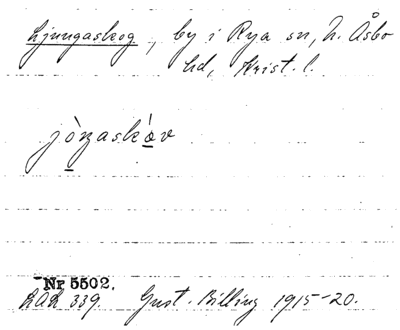 Ljungaskog, by i Rya sn, N. Åsbo
hd, Krist. l.
jòŋaskò̱v
Nr 5502.
LAL 339. Gust. Billing 1915-20.